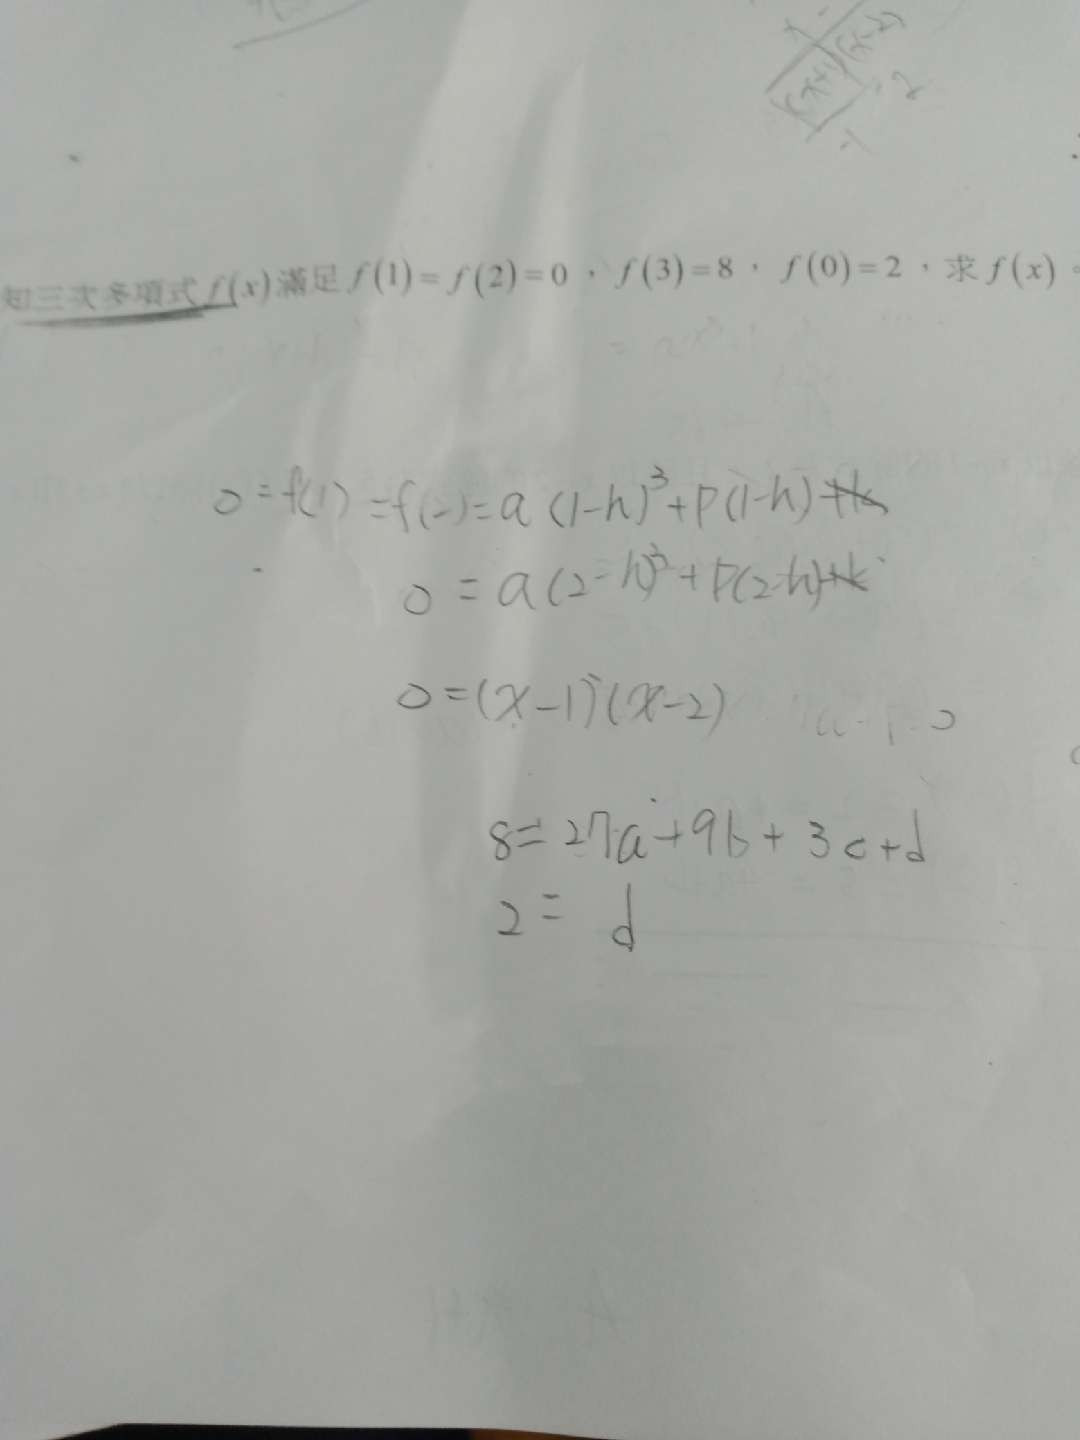 (x+1)(x-2)
-2
-1
知三次多項式f(x)滿足f(1)=f(2)=0,f(3)=8,f(0)=2,求f(x)。
0=f(1)=f(2)=a(1-h)³+p(1-h)+k
0=a(2-h)³+p(2-h)+k
0=(x-1)(x-2)
8=27a+9b+3c+d
2=d